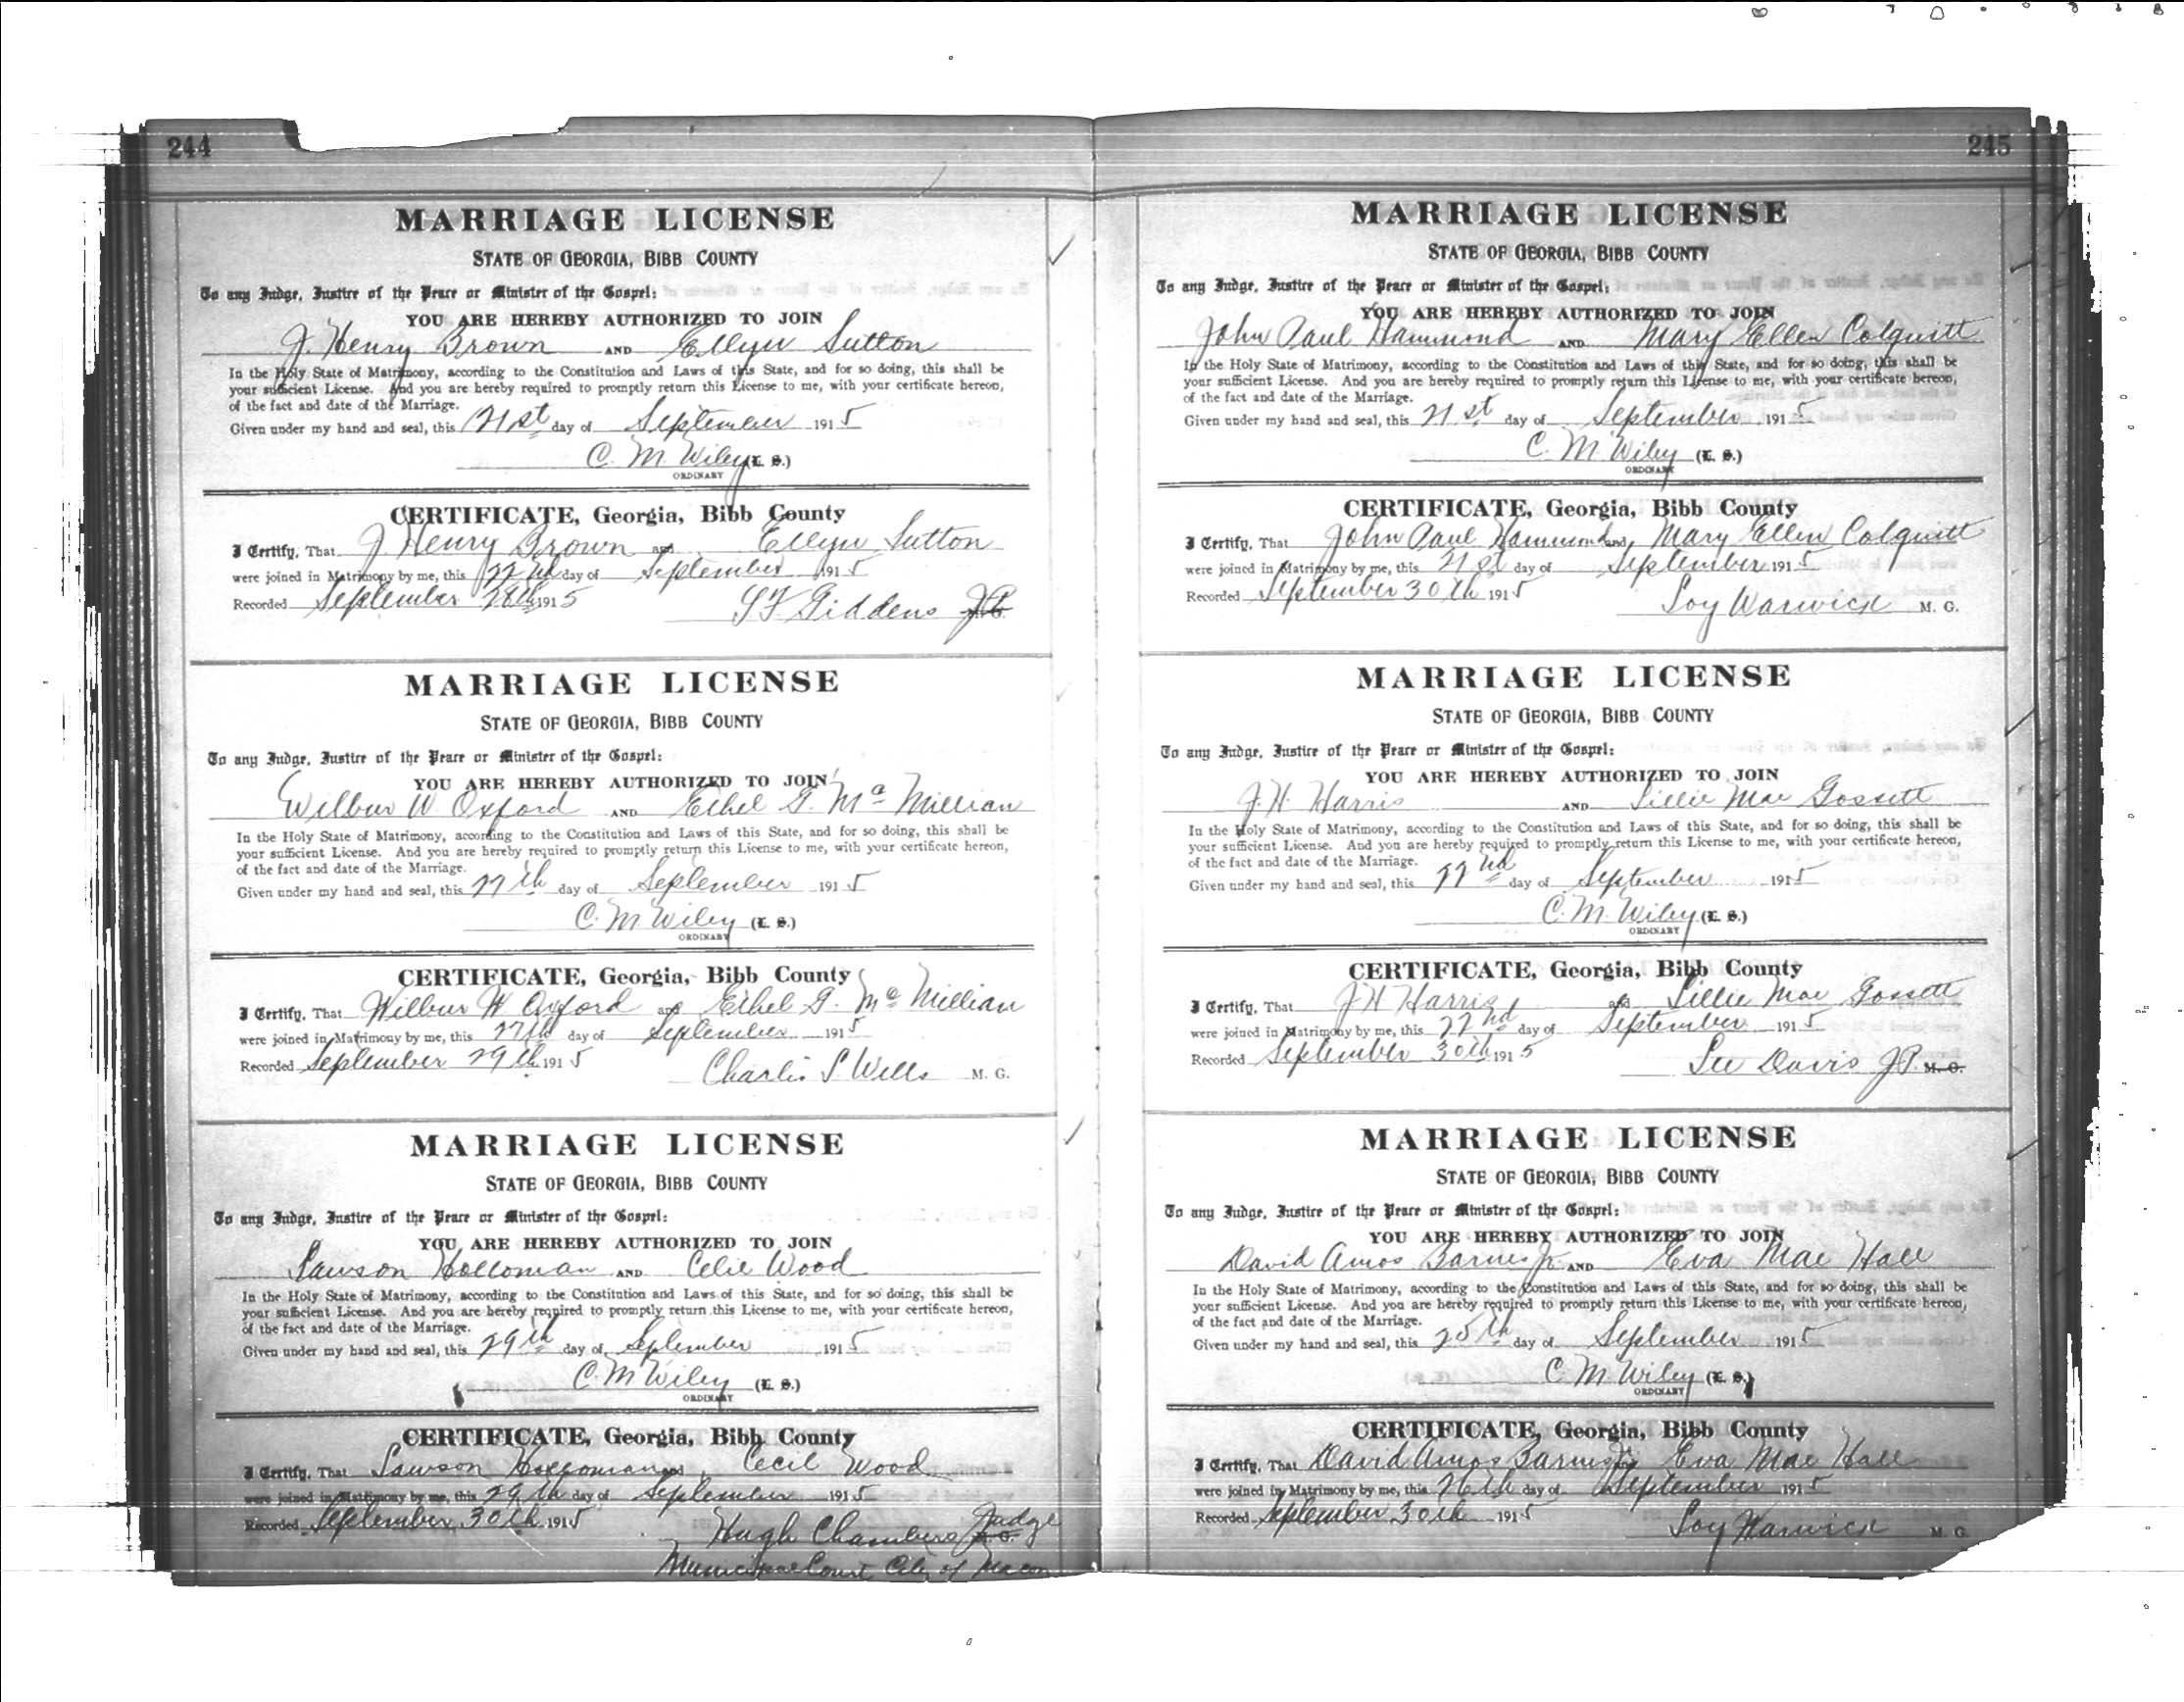 244
MARRIAGE LICENSE
STATE OF GEORGIA, BIBB COUNTY
To any Judge, Justice of the Peace or Minister of the Gospel:
YOU ARE HEREBY AUTHORIZED TO JOIN
J. Henry Brown AND Ellyn Sutton
In the Holy State of Matrimony, according to the Constitution and Laws of this State, and for so doing, this shall be
your sufficient License. And you are hereby required to promptly return this License to me, with your certificate hereon,
of the fact and date of the Marriage.
Given under my hand and seal, this 21st day of September 1915
C. M. Wiley (L. S.)
ORDINARY
CERTIFICATE, Georgia, Bibb County
I Certify, That J. Henry Brown and Ellyn Sutton
were joined in Matrimony by me, this 22nd day of September 1915
Recorded September 28th 1915 Giddens J.P.
MARRIAGE LICENSE
STATE OF GEORGIA, BIBB COUNTY
To any Judge, Justice of the Peace or Minister of the Gospel:
YOU ARE HEREBY AUTHORIZED TO JOIN
Wilbur W Oxford AND Ethel G. McMillian
In the Holy State of Matrimony, according to the Constitution and Laws of this State, and for so doing, this shall be
your sufficient License. And you are hereby required to promptly return this License to me, with your certificate hereon,
of the fact and date of the Marriage.
Given under my hand and seal, this 27th day of September 1915
C. M. Wiley (L. S.)
ORDINARY
CERTIFICATE, Georgia, Bibb County
I Certify, That Wilbur W Oxford and Ethel G. McMillian
were joined in Matrimony by me, this 27th day of September 1915
Recorded September 29th 1915 Charlis S Wells M. G.
MARRIAGE LICENSE
STATE OF GEORGIA, BIBB COUNTY
To any Judge, Justice of the Peace or Minister of the Gospel:
YOU ARE HEREBY AUTHORIZED TO JOIN
Lawson Holloman AND Celie Wood
In the Holy State of Matrimony, according to the Constitution and Laws of this State, and for so doing, this shall be
your sufficient License. And you are hereby required to promptly return this License to me, with your certificate hereon,
of the fact and date of the Marriage.
Given under my hand and seal, this 29th day of September 1915
C. M Wiley (L. S.)
ORDINARY
CERTIFICATE, Georgia, Bibb County
I Certify, That Lawson Holloman and Cecil Wood
were joined in Matrimony by me, this 29th day of September 1915
Recorded September 30th 1915 Hugh Chambers Judge
Municipal Court City of Macon
245
MARRIAGE LICENSE
STATE OF GEORGIA, BIBB COUNTY
To any Judge, Justice of the Peace or Minister of the Gospel:
YOU ARE HEREBY AUTHORIZED TO JOIN
John Paul Hammond AND Mary Ellen Colquitt
In the Holy State of Matrimony, according to the Constitution and Laws of this State, and for so doing, this shall be
your sufficient License. And you are hereby required to promptly return this License to me, with your certificate hereon,
of the fact and date of the Marriage.
Given under my hand and seal, this 21st day of September 1915
C. M. Wiley (L. S.)
ORDINARY
CERTIFICATE, Georgia, Bibb County
I Certify, That John Paul Hammond and Mary Ellen Colquitt
were joined in Matrimony by me, this 21st day of September 1915
Recorded September 30th 1915 Loy Warwick M. G.
MARRIAGE LICENSE
STATE OF GEORGIA, BIBB COUNTY
To any Judge, Justice of the Peace or Minister of the Gospel:
YOU ARE HEREBY AUTHORIZED TO JOIN
J. H. Harris AND Lillie Mae Gossett
In the Holy State of Matrimony, according to the Constitution and Laws of this State, and for so doing, this shall be
your sufficient License. And you are hereby required to promptly return this License to me, with your certificate hereon,
of the fact and date of the Marriage.
Given under my hand and seal, this 22nd day of September 1915
C. M. Wiley (L. S.)
ORDINARY
CERTIFICATE, Georgia, Bibb County
I Certify, That J H Harris and Lillie Mae Gossett
were joined in Matrimony by me, this 22nd day of September 1915
Recorded September 30th 1915 Lee Davis J.P. M. G.
MARRIAGE LICENSE
STATE OF GEORGIA, BIBB COUNTY
To any Judge, Justice of the Peace or Minister of the Gospel:
YOU ARE HEREBY AUTHORIZED TO JOIN
David Amos Barnes Jr. AND Eva Mae Hall
In the Holy State of Matrimony, according to the Constitution and Laws of this State, and for so doing, this shall be
your sufficient License. And you are hereby required to promptly return this License to me, with your certificate hereon,
of the fact and date of the Marriage.
Given under my hand and seal, this 25th day of September 1915
C. M. Wiley (L. S.)
ORDINARY
CERTIFICATE, Georgia, Bibb County
I Certify, That David Amos Barnes Jr. and Eva Mae Hall
were joined in Matrimony by me, this 26th day of September 1915
Recorded September 30th 1915 Loy Warwick M. G.